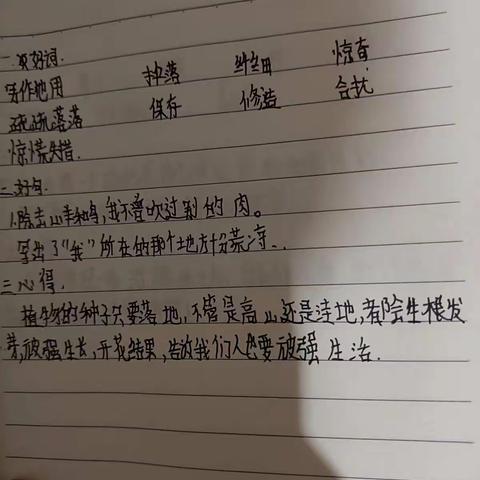 一、好词.
抖落 纤细 惊奇
疏疏落落 保存 修造 合抱
惊慌失措.
二、好句.
1.除去山羊和鸟,我不曾吃过别的肉。
写出了"我"所在的那个地方十分荒凉...
三、心得.
植物的种子只要落地,不管是高山还是洼地,都会生根发
芽,顽强生长,开花结果,告诉我们人也要顽强生活.